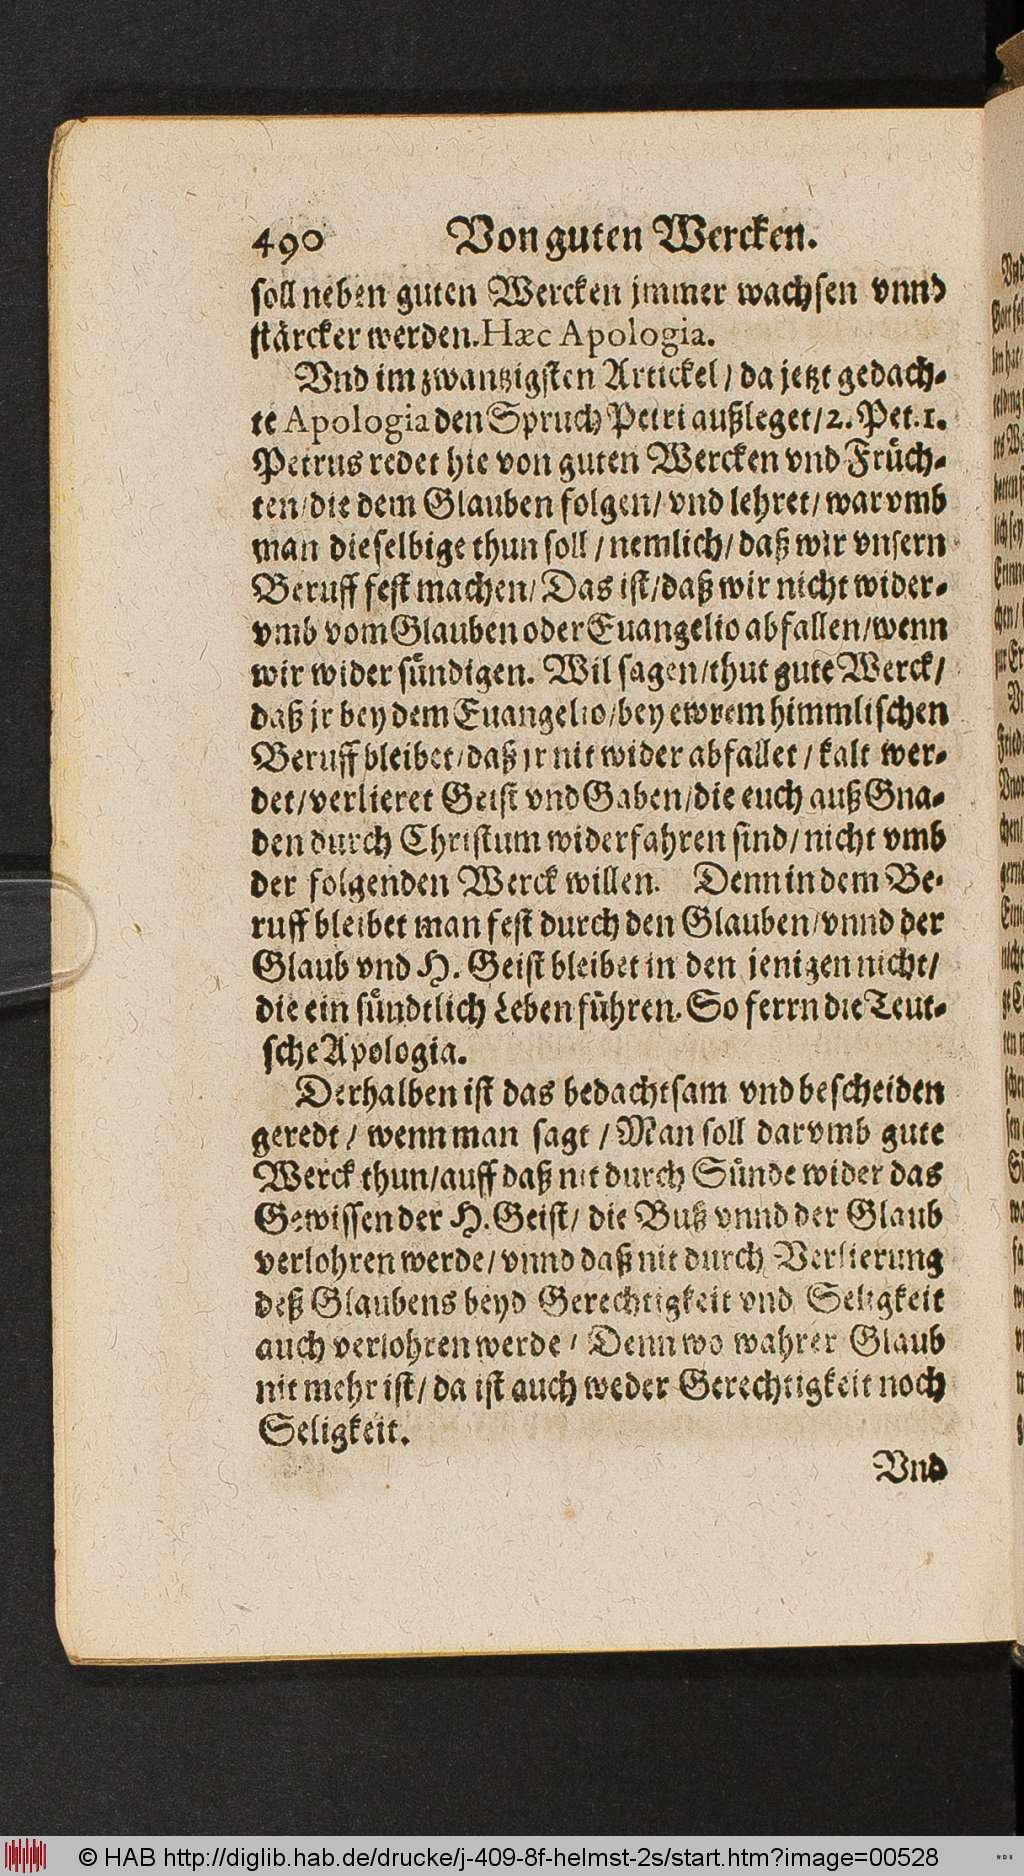 490 Von guten Wercken.
soll neben guten Wercken jmmer wachsen vnnd
stärcker werden. Hæc Apologia.
Vnd im zwantzigsten Artickel / da jetzt gedach-
te Apologia den Spruch Petri außleget / 2. Pet. 1.
Petrus redet hie von guten Wercken vnd Früch-
ten / die dem Glauben folgen / vnd lehret / warvmb
man dieselbige thun soll / nemlich / daß wir vnsern
Beruff fest machen / Das ist / daß wir nicht wider-
vmb vom Glauben oder Euangelio abfallen / wenn
wir wider sündigen. Wil sagen / thut gute Werck /
daß jr bey dem Euangelio / bey ewrem himmlischen
Beruff bleibet / daß jr nit wider abfallet / kalt wer-
det / verlieret Geist vnd Gaben / die euch auß Gna-
den durch Christum widerfahren sind / nicht vmb
der folgenden Werck willen. Denn in dem Be-
ruff bleibet man fest durch den Glauben / vnnd der
Glaub vnd H. Geist bleibet in den jenigen nicht /
die ein sündtlich Leben führen. So ferrn die Teut-
sche Apologia.
Derhalben ist das bedachtsam vnd bescheiden
geredt / wenn man sagt / Man soll darvmb gute
Werck thun / auff daß nit durch Sünde wider das
Gewissen der H. Geist / die Buß vnnd der Glaub
verlohren werde / vnnd daß nit durch Verlierung
deß Glaubens beyd Gerechtigkeit vnd Seligkeit
auch verlohren werde / Denn wo wahrer Glaub
nit mehr ist / da ist auch weder Gerechtigkeit noch
Seligkeit.
Vnd
© HAB http://diglib.hab.de/drucke/j-409-8f-helmst-2s/start.htm?image=00528